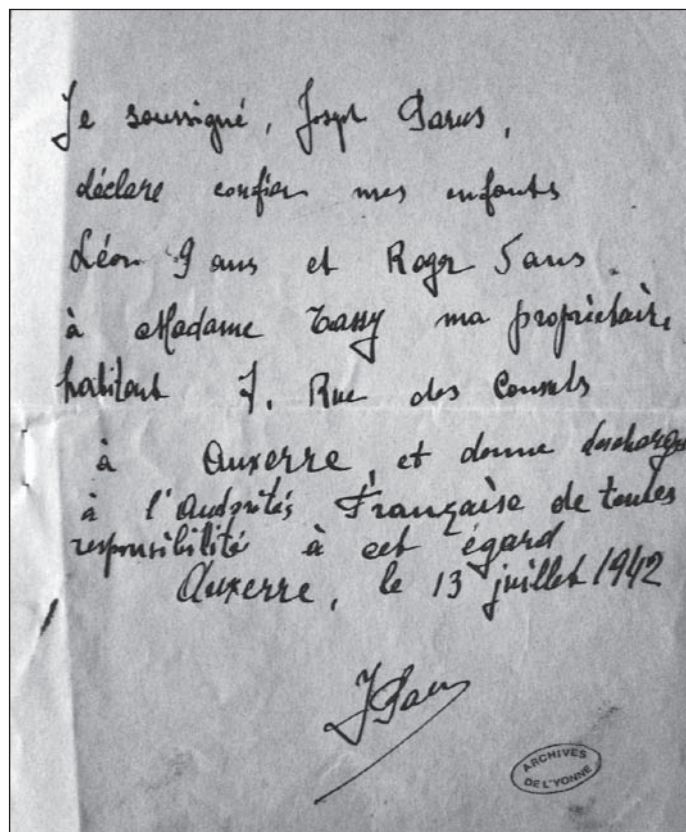 Je soussigné, Joseph Parus,
déclare confier mes enfants
Léon 9 ans et Roger 5 ans
à Madame Tassy ma propriétaire
habitant 7. Rue des Consuls
à Auxerre, et donne decharge
à l'Autorités Française de toutes
responsibilité à cet égard
Auxerre, le 13 juillet 1942
ARCHIVES
DE L'YONNE